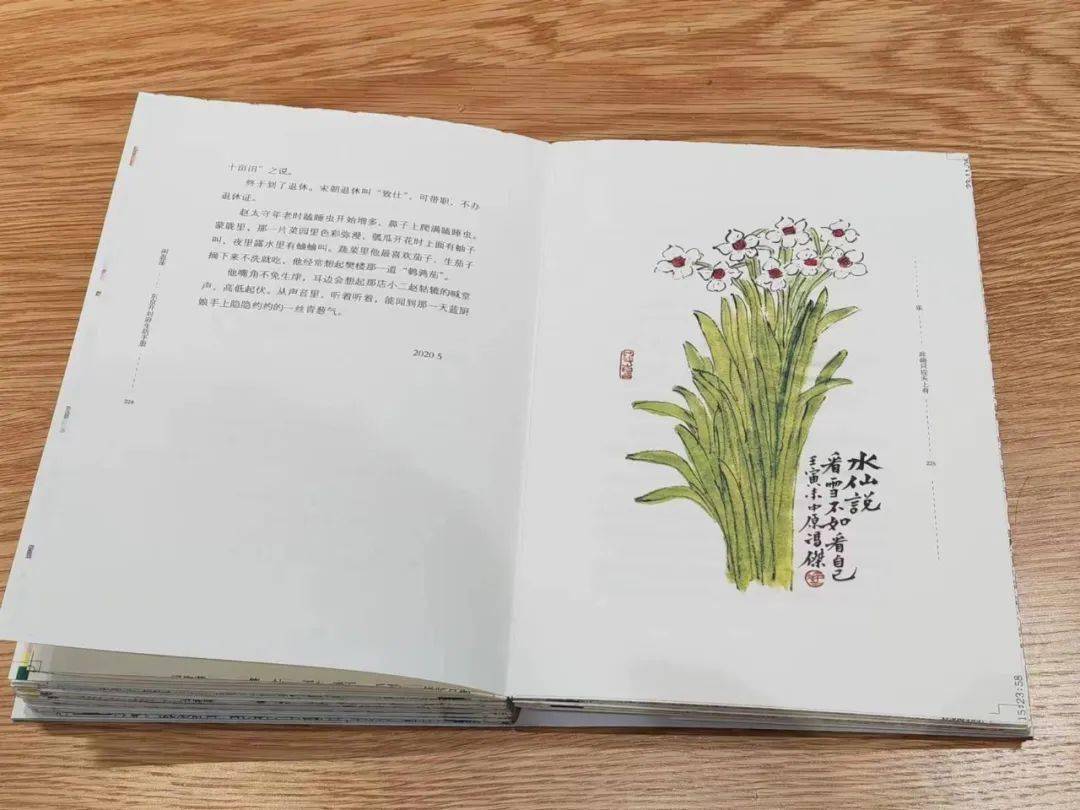 十亩田”之说。
终于到了退休。宋朝退休叫“致仕”，可带职，不办
退休证。
赵太守年老时瞌睡虫开始增多，鼻子上爬满瞌睡虫。
蒙眬里，那一片菜园里色彩弥漫，瓠瓜开花时上面有蚰子
叫，夜里露水里有蛐蛐叫。蔬菜里他最喜欢茄子，生茄子
摘下来不洗就吃，他经常想起樊楼那一道“鹌鹑茄”。
他嘴角不免生津，耳边会想起那店小二赵粘辘的喊堂
声，高低起伏。从声音里，听着听着，能闻到那一天蓝厨
娘手上隐隐约约的一丝青葱气。
2020 5
224
水仙說
看雪不如看自己
壬寅末中原馮傑
225
15:23:58